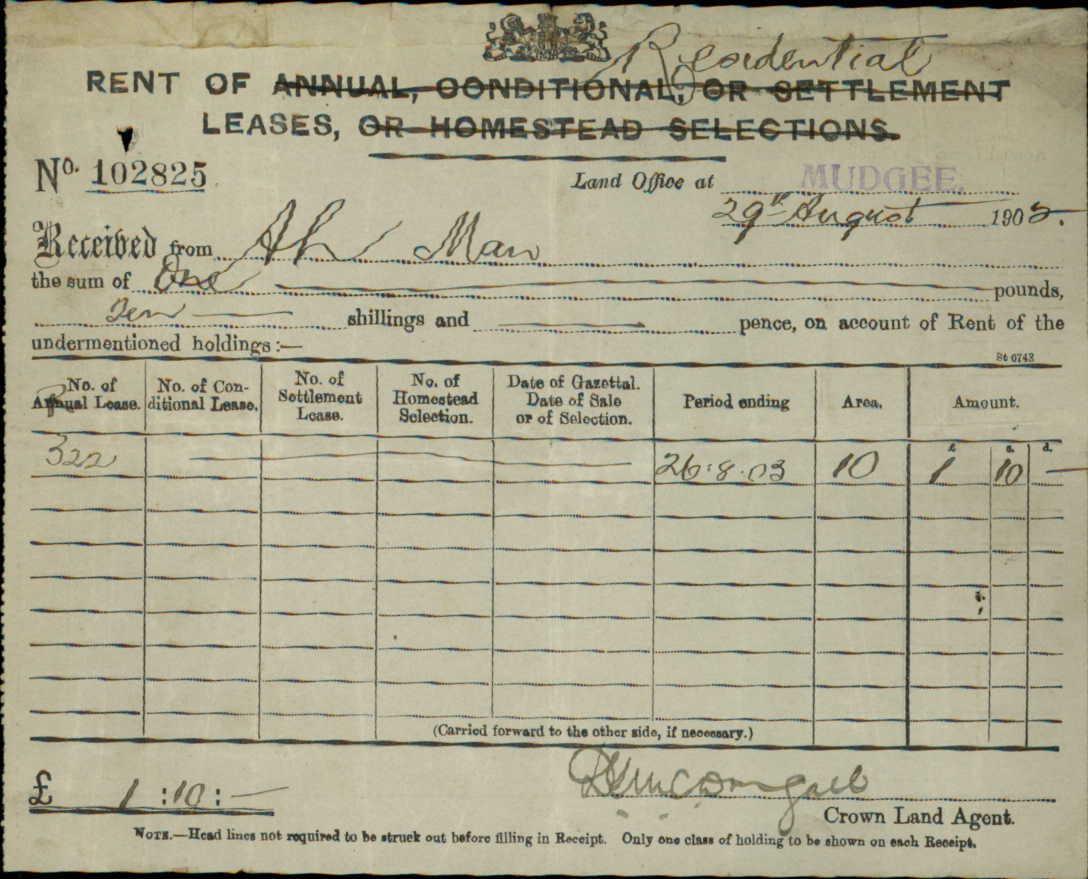 Residential
RENT OF ANNUAL, CONDITIONAL, OR SETTLEMENT
LEASES, OR HOMESTEAD SELECTIONS.
No. 102825
Land Office at MUDGEE.
29th August 1902.
Received from Ah Man
the sum of One pounds,
Ten shillings and pence, on account of Rent of the
undermentioned holdings:—
St 6743
No. of Annual Lease. No. of Conditional Lease. No. of Settlement Lease. No. of Homestead Selection. Date of Gazettal. Date of Sale or of Selection. Period ending Area. Amount.
£ s. d.
322 26.8.03 10 1 10 —
(Carried forward to the other side, if necessary.)
£ 1 : 10 : —
Crown Land Agent.
NOTE.—Head lines not required to be struck out before filling in Receipt. Only one class of holding to be shown on each Receipt.